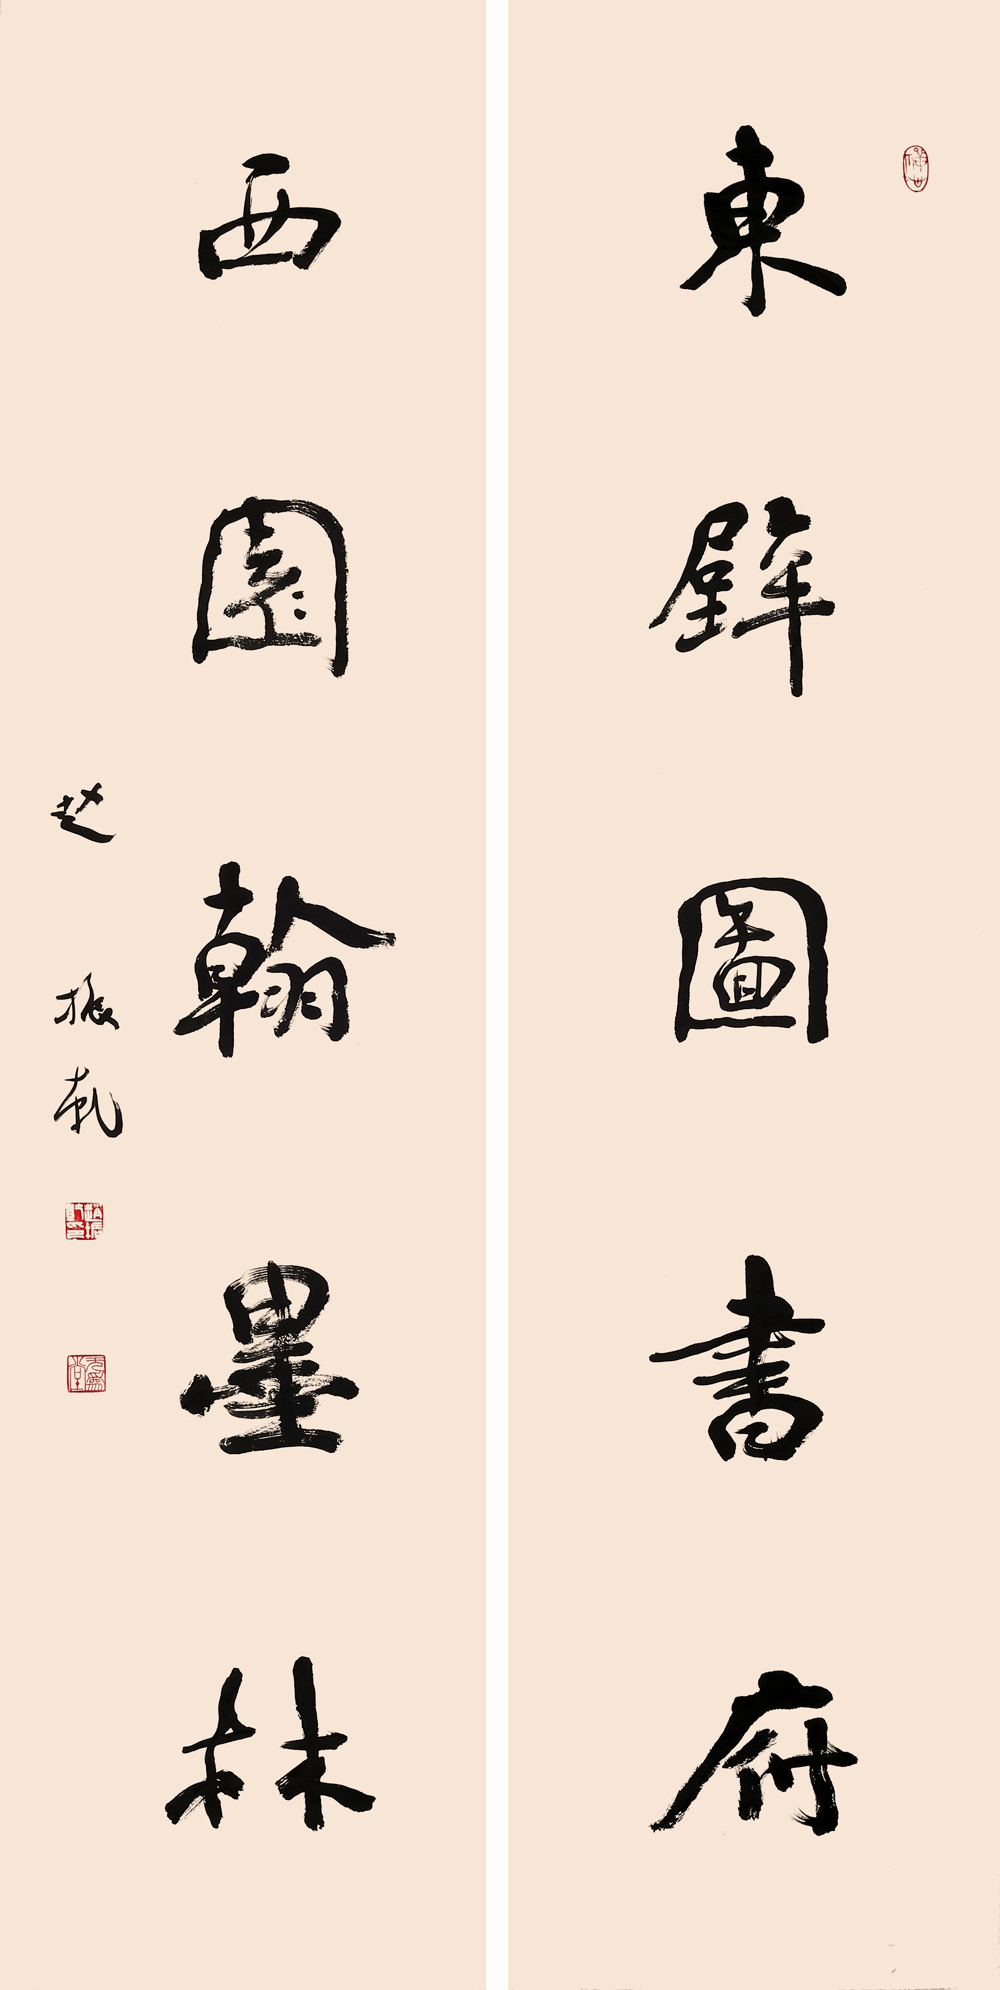 東壁圖書府
西園翰墨林
趙振乾